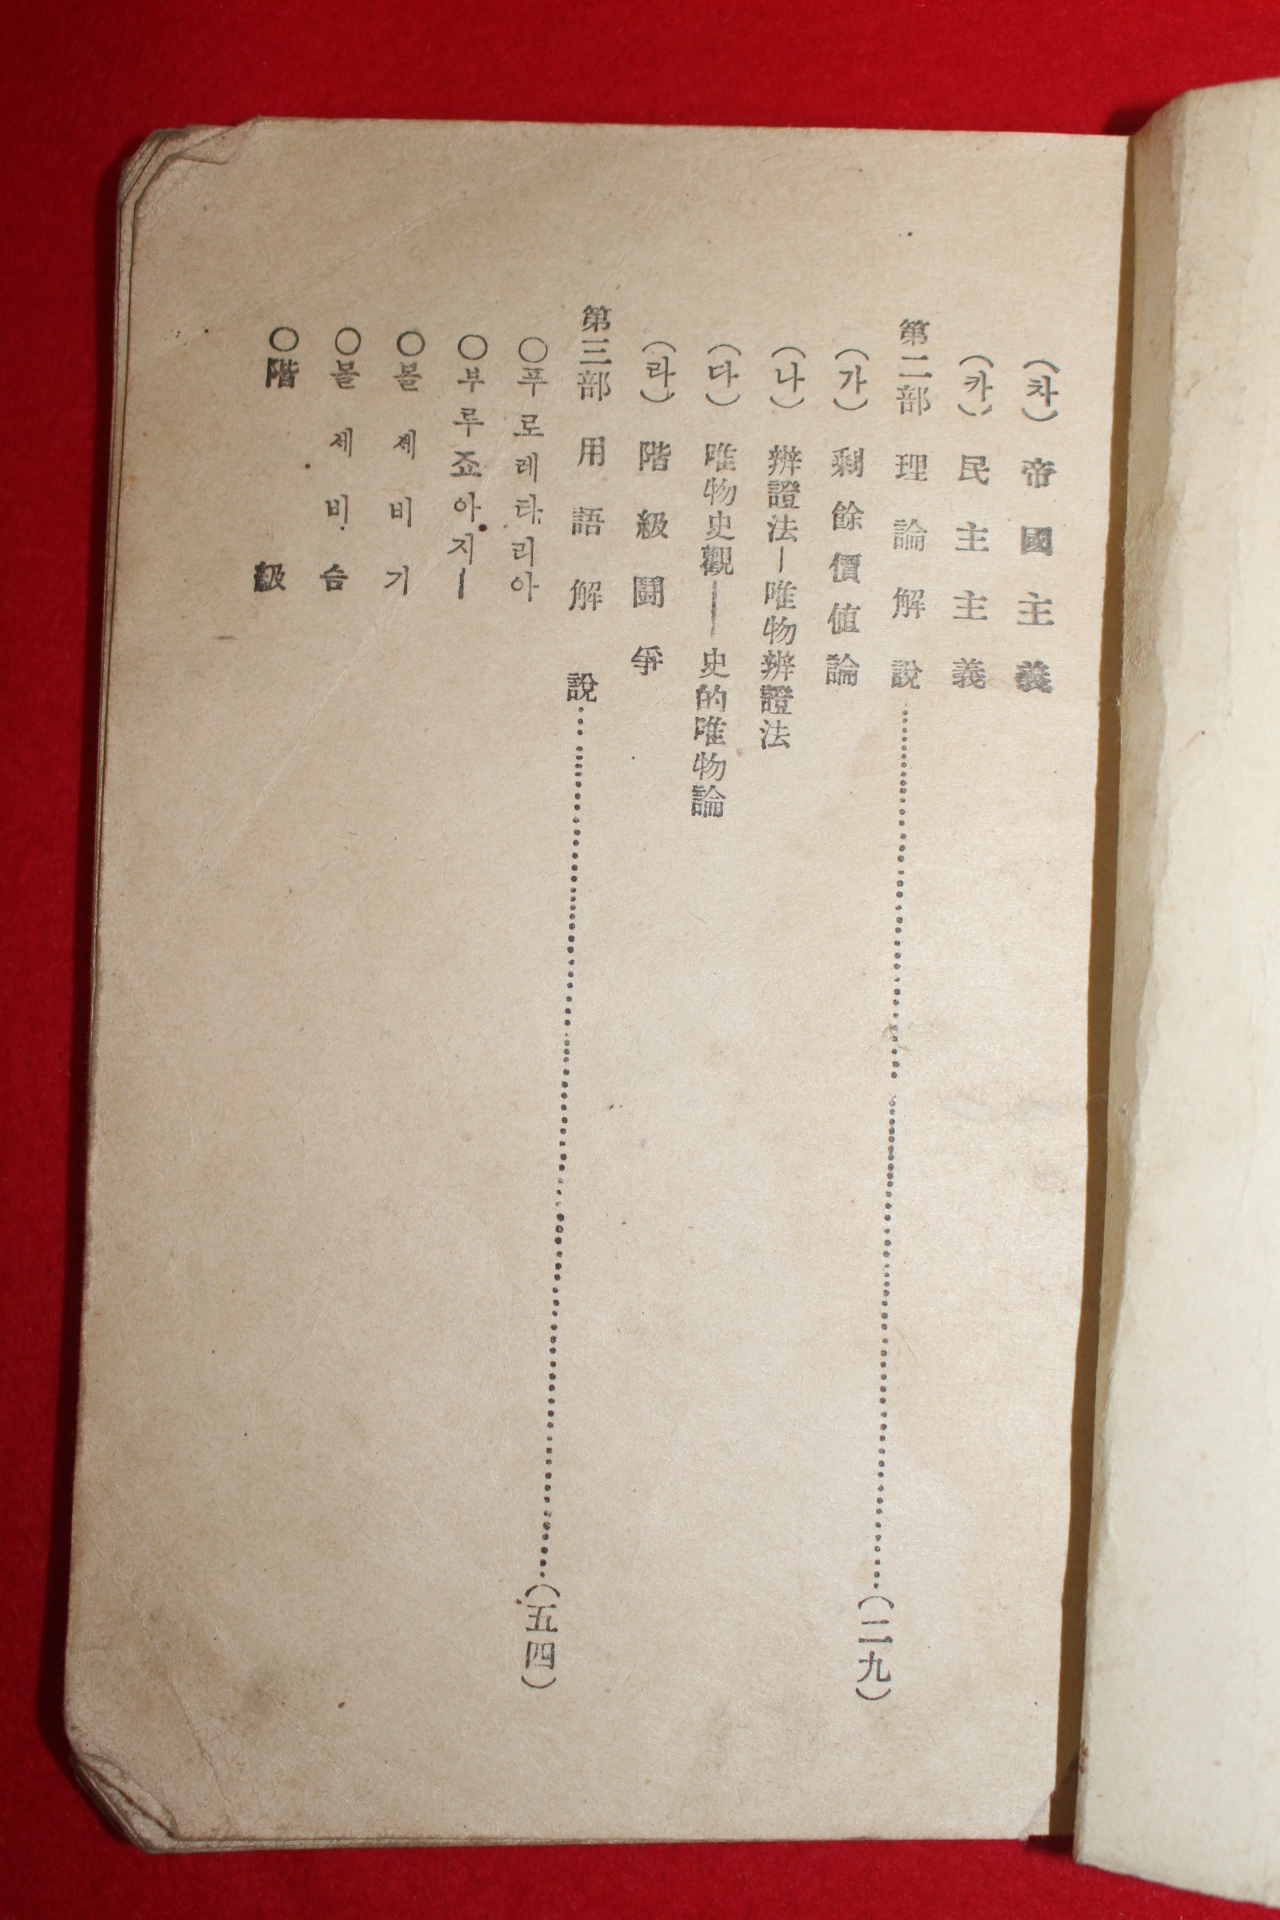 (차) 帝國主義
(카) 民主主義
第二部 理論解說……………(二九)
(가) 剩餘價値論
(나) 辨證法—唯物辨證法
(다) 唯物史觀——史的唯物論
(라) 階級鬪爭
第三部 用語解說……………(五四)
○푸로레타리아
○부루죠아지ー
○몰세비기
○몰세비슴
○階級